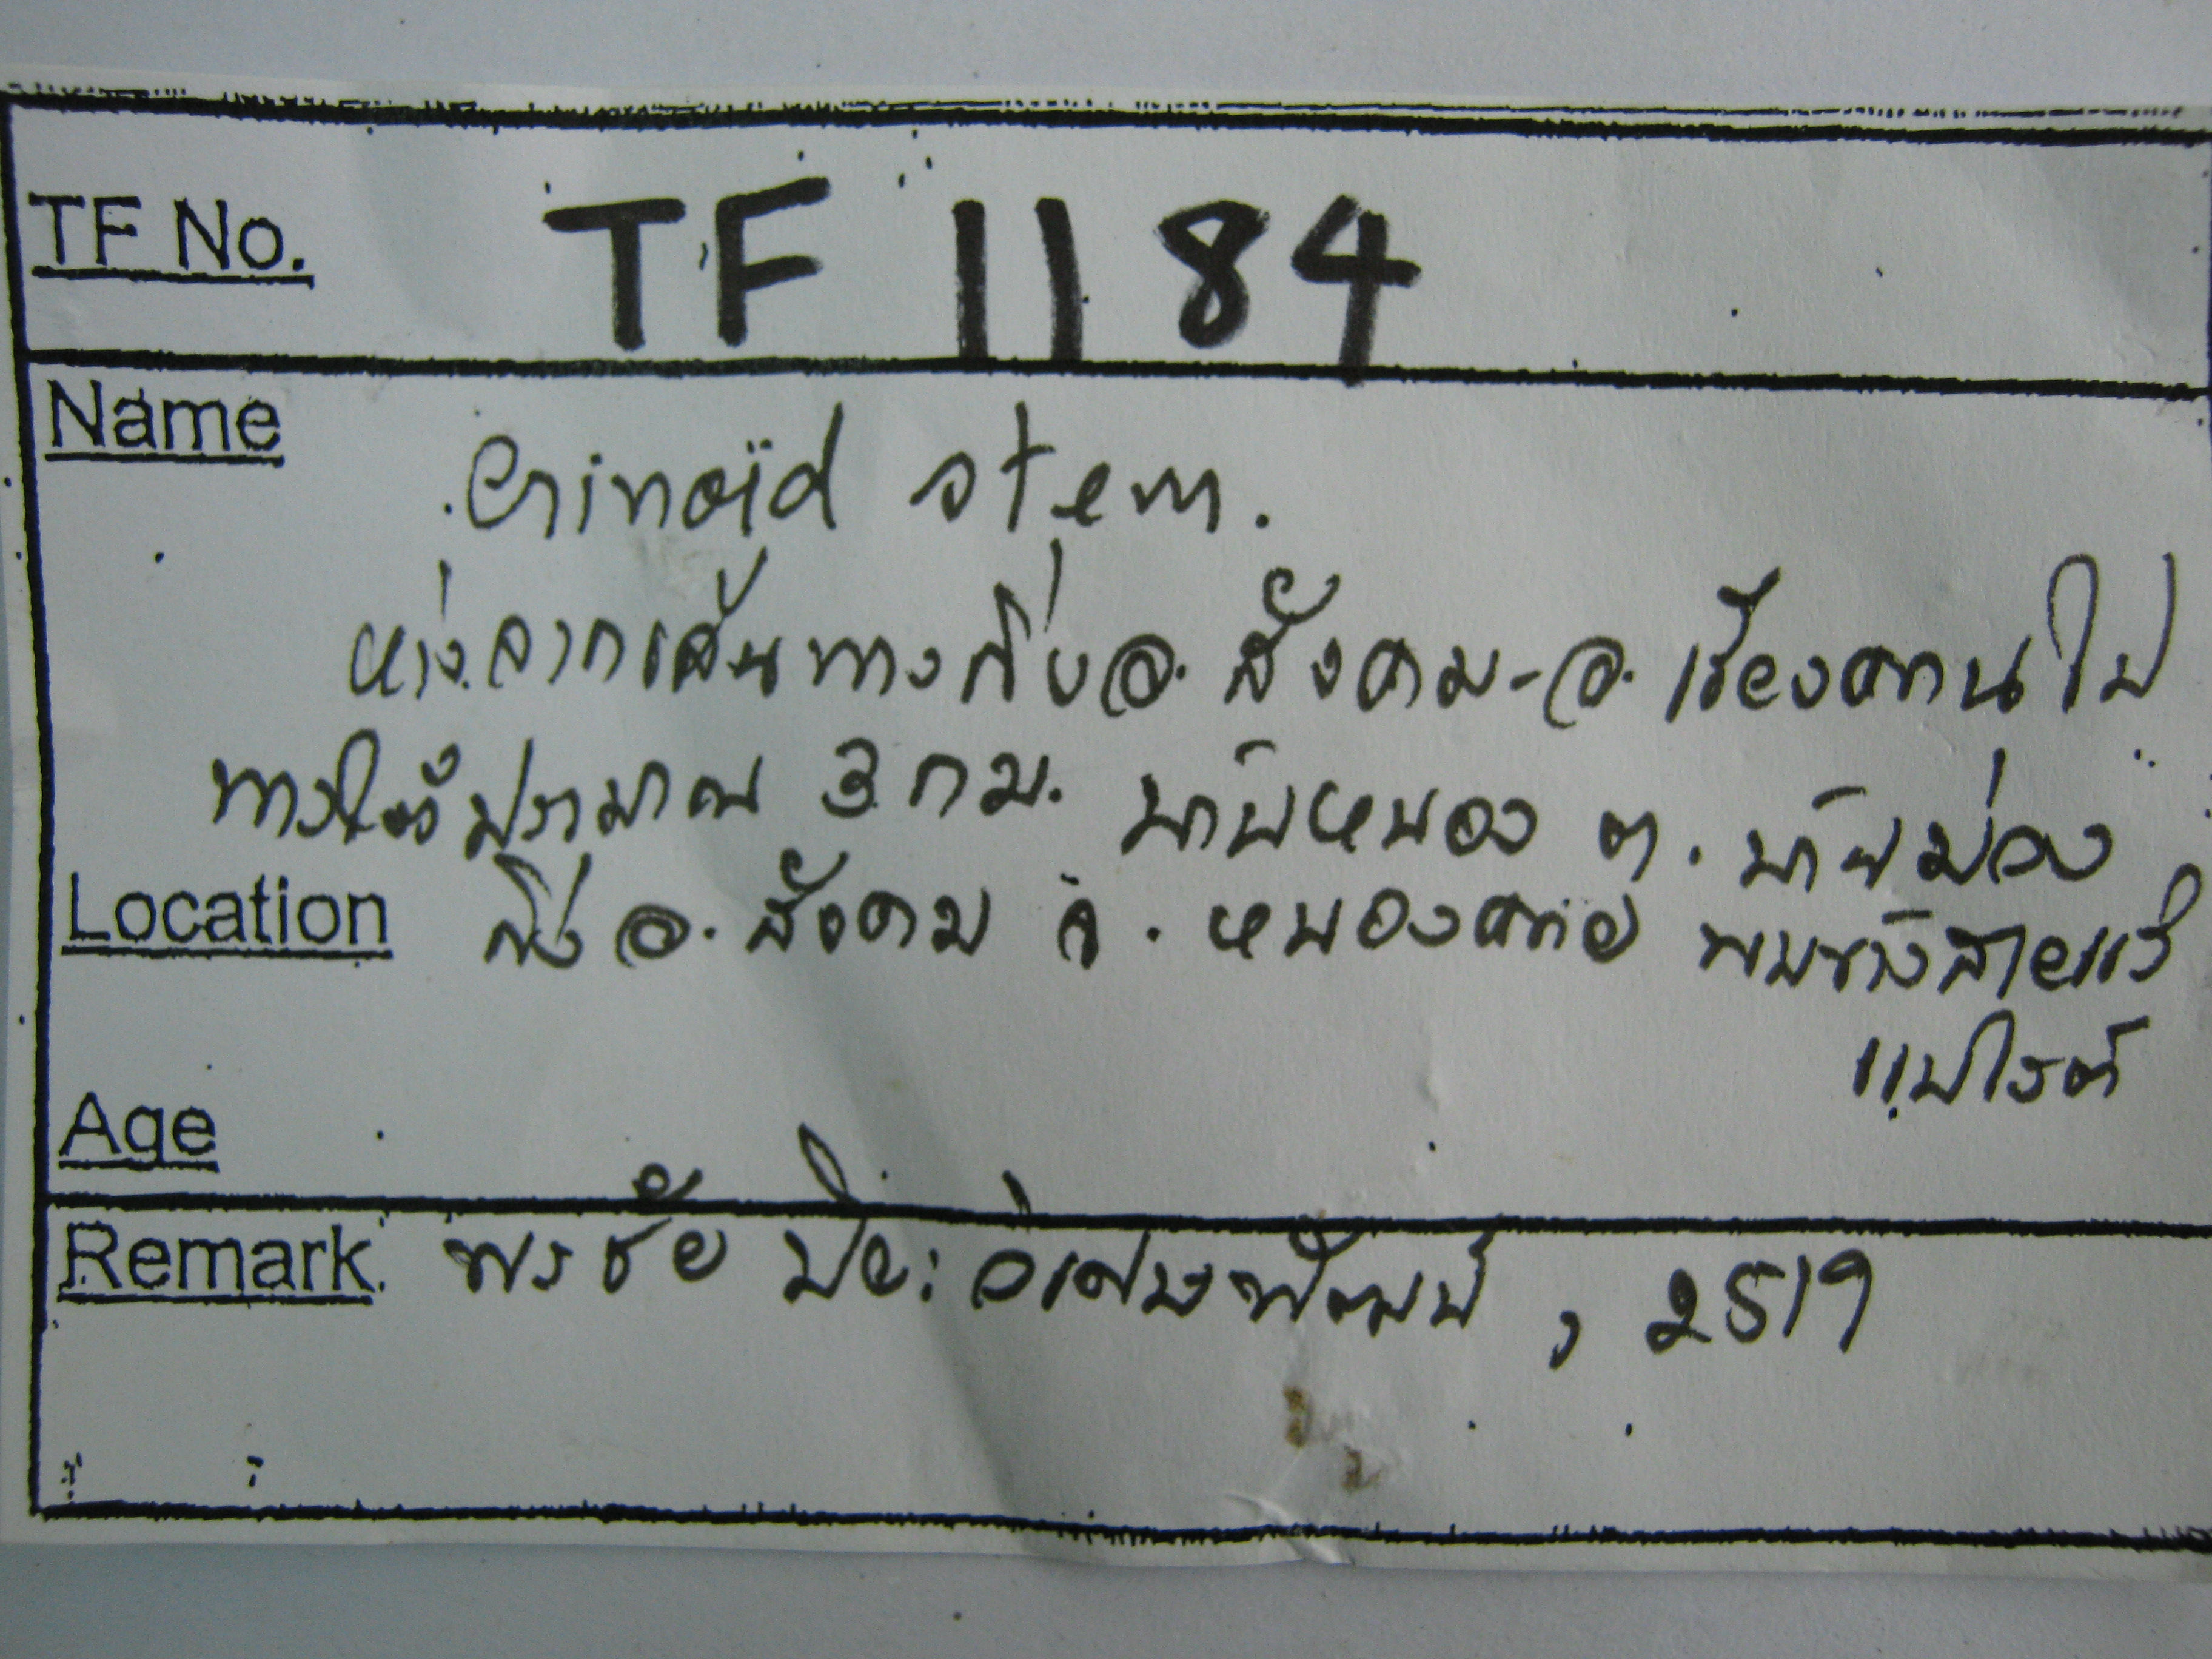 TF No. TF 1184
Name
Crinoid stem.
ห่างจากเส้นทางกิ่งอ.สังคม-อ.เชียงคานไป
ทางใต้ประมาณ 3 กม. บ้านหนอง ต.บ้านม่วง
Location กิ่งอ.สังคม จ.หนองคาย พบข้างสายแร่
แบไรต์
Age
Remark พรชัย ปิยะวิเศษพัฒน์, 2519